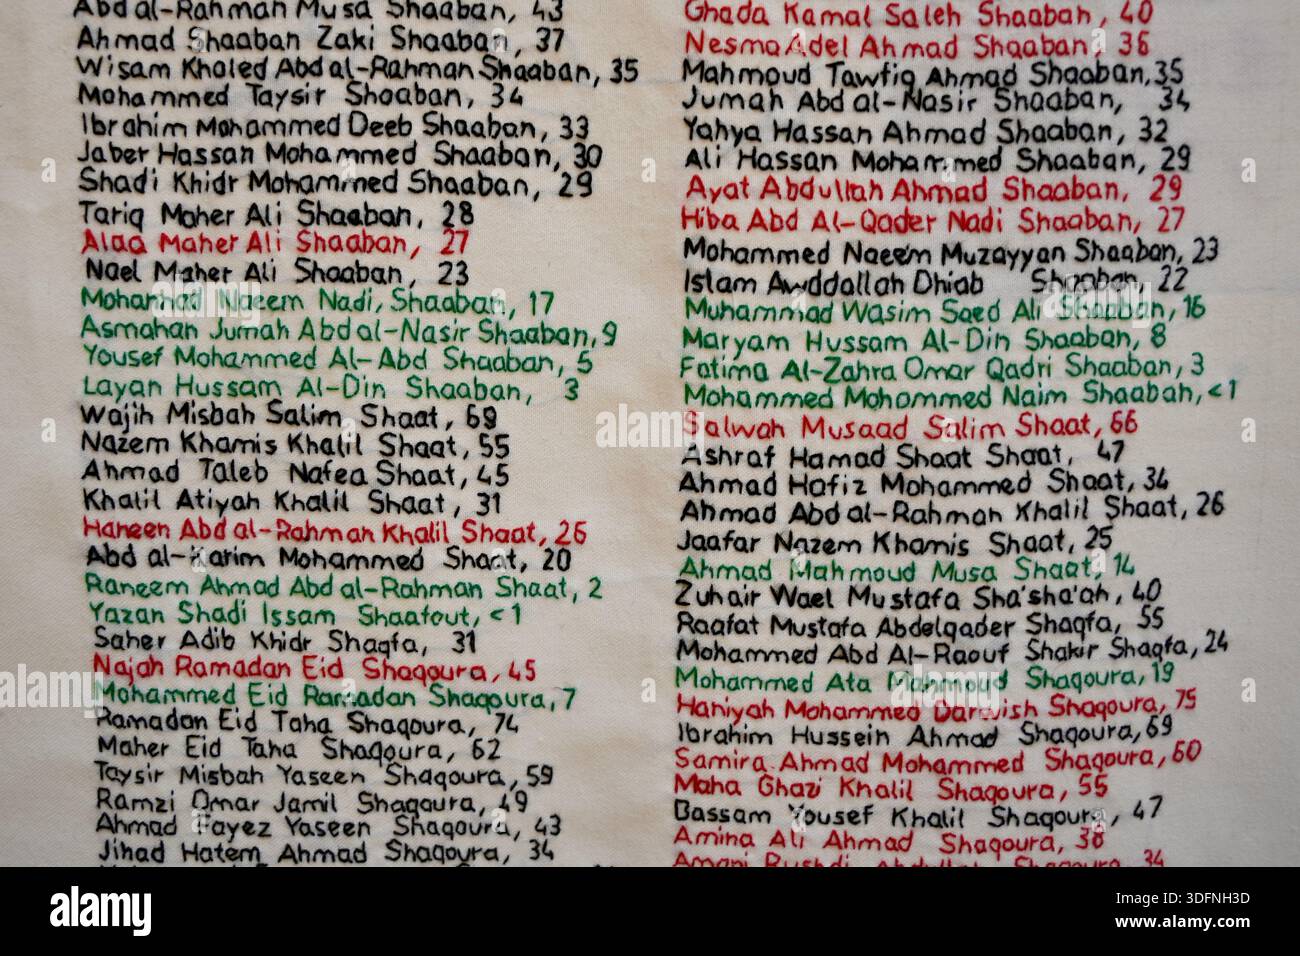 Abd al-Rahman Musa Shaaban, 43
Ahmad Shaaban Zaki Shaaban, 37
Wisam Khaled Abd al-Rahman Shaaban, 35
Mohammed Taysir Shaaban, 34
Ibrahim Mohammed Deeb Shaaban, 33
Jaber Hassan Mohammed Shaaban, 30
Shadi Khidr Mohammed Shaaban, 29
Tariq Maher Ali Shaaban, 28
Alaa Maher Ali Shaaban, 27
Nael Maher Ali Shaaban, 23
Mohannad Naeem Nadi, Shaaban, 17
Asmahan Jumah Abd al-Nasir Shaaban, 9
Yousef Mohammed Al-Abd Shaaban, 5
Layan Hussam Al-Din Shaaban, 3
Wajih Misbah Salim Shaat, 69
Nazem Khamis Khalil Shaat, 55
Ahmad Taleb Nafea Shaat, 45
Khalil Atiyah Khalil Shaat, 31
Haneen Abd al-Rahman Khalil Shaat, 26
Abd al-Karim Mohammed Shaat, 20
Raneem Ahmad Abd al-Rahman Shaat, 2
Yazan Shadi Issam Shaafout, <1
Saher Adib Khidr Shaqfa, 31
Najah Ramadan Eid Shaqoura, 45
Mohammed Eid Ramadan Shaqoura, 7
Ramadan Eid Taha Shaqoura, 74
Maher Eid Taha Shaqoura, 62
Taysir Misbah Yaseen Shaqoura, 59
Ramzi Omar Jamil Shaqoura, 49
Ahmad Fayez Yaseen Shaqoura, 43
Jihad Hatem Ahmad Shaqoura, 34
Ghada Kamal Saleh Shaaban, 40
Nesma Adel Ahmad Shaaban, 36
Mahmoud Tawfiq Ahmad Shaaban, 35
Jumah Abd al-Nasir Shaaban, 34
Yahya Hassan Ahmad Shaaban, 32
Ali Hassan Mohammed Shaaban, 29
Ayat Abdullah Ahmad Shaaban, 29
Hiba Abd Al-Qader Nadi Shaaban, 27
Mohammed Naeem Muzayyan Shaaban, 23
Islam Awddallah Dhiab Shaaban, 22
Muhammad Wasim Saed Ali Shaaban, 16
Maryam Hussam Al-Din Shaaban, 8
Fatima Al-Zahra Omar Qadri Shaaban, 3
Mohammed Mohammed Naim Shaabah, <1
Salwah Musaad Salim Shaat, 66
Ashraf Hamad Shaat Shaat, 47
Ahmad Hafiz Mohammed Shaat, 34
Ahmad Abd al-Rahman Khalil Shaat, 26
Jaafar Nazem Khamis Shaat, 25
Ahmad Mahmoud Musa Shaat, 14
Zuhair Wael Mustafa Sha'sha'ah, 40
Raafat Mustafa Abdelqader Shaqfa, 55
Mohammed Abd Al-Raouf Shakir Shaqfa, 24
Mohammed Ata Mahmoud Shaqoura, 19
Haniyah Mohammed Darwish Shaqoura, 75
Ibrahim Hussein Ahmad Shaqoura, 69
Samira Ahmad Mohammed Shaqoura, 60
Maha Ghazi Khalil Shaqoura, 55
Bassam Yousef Khalil Shaqoura, 47
Amina Ali Ahmad Shaqoura, 38
Amani Rushdi Abdullah Shaqoura, 34
alamy
Image ID: 3DFNH3D
www.alamy.com